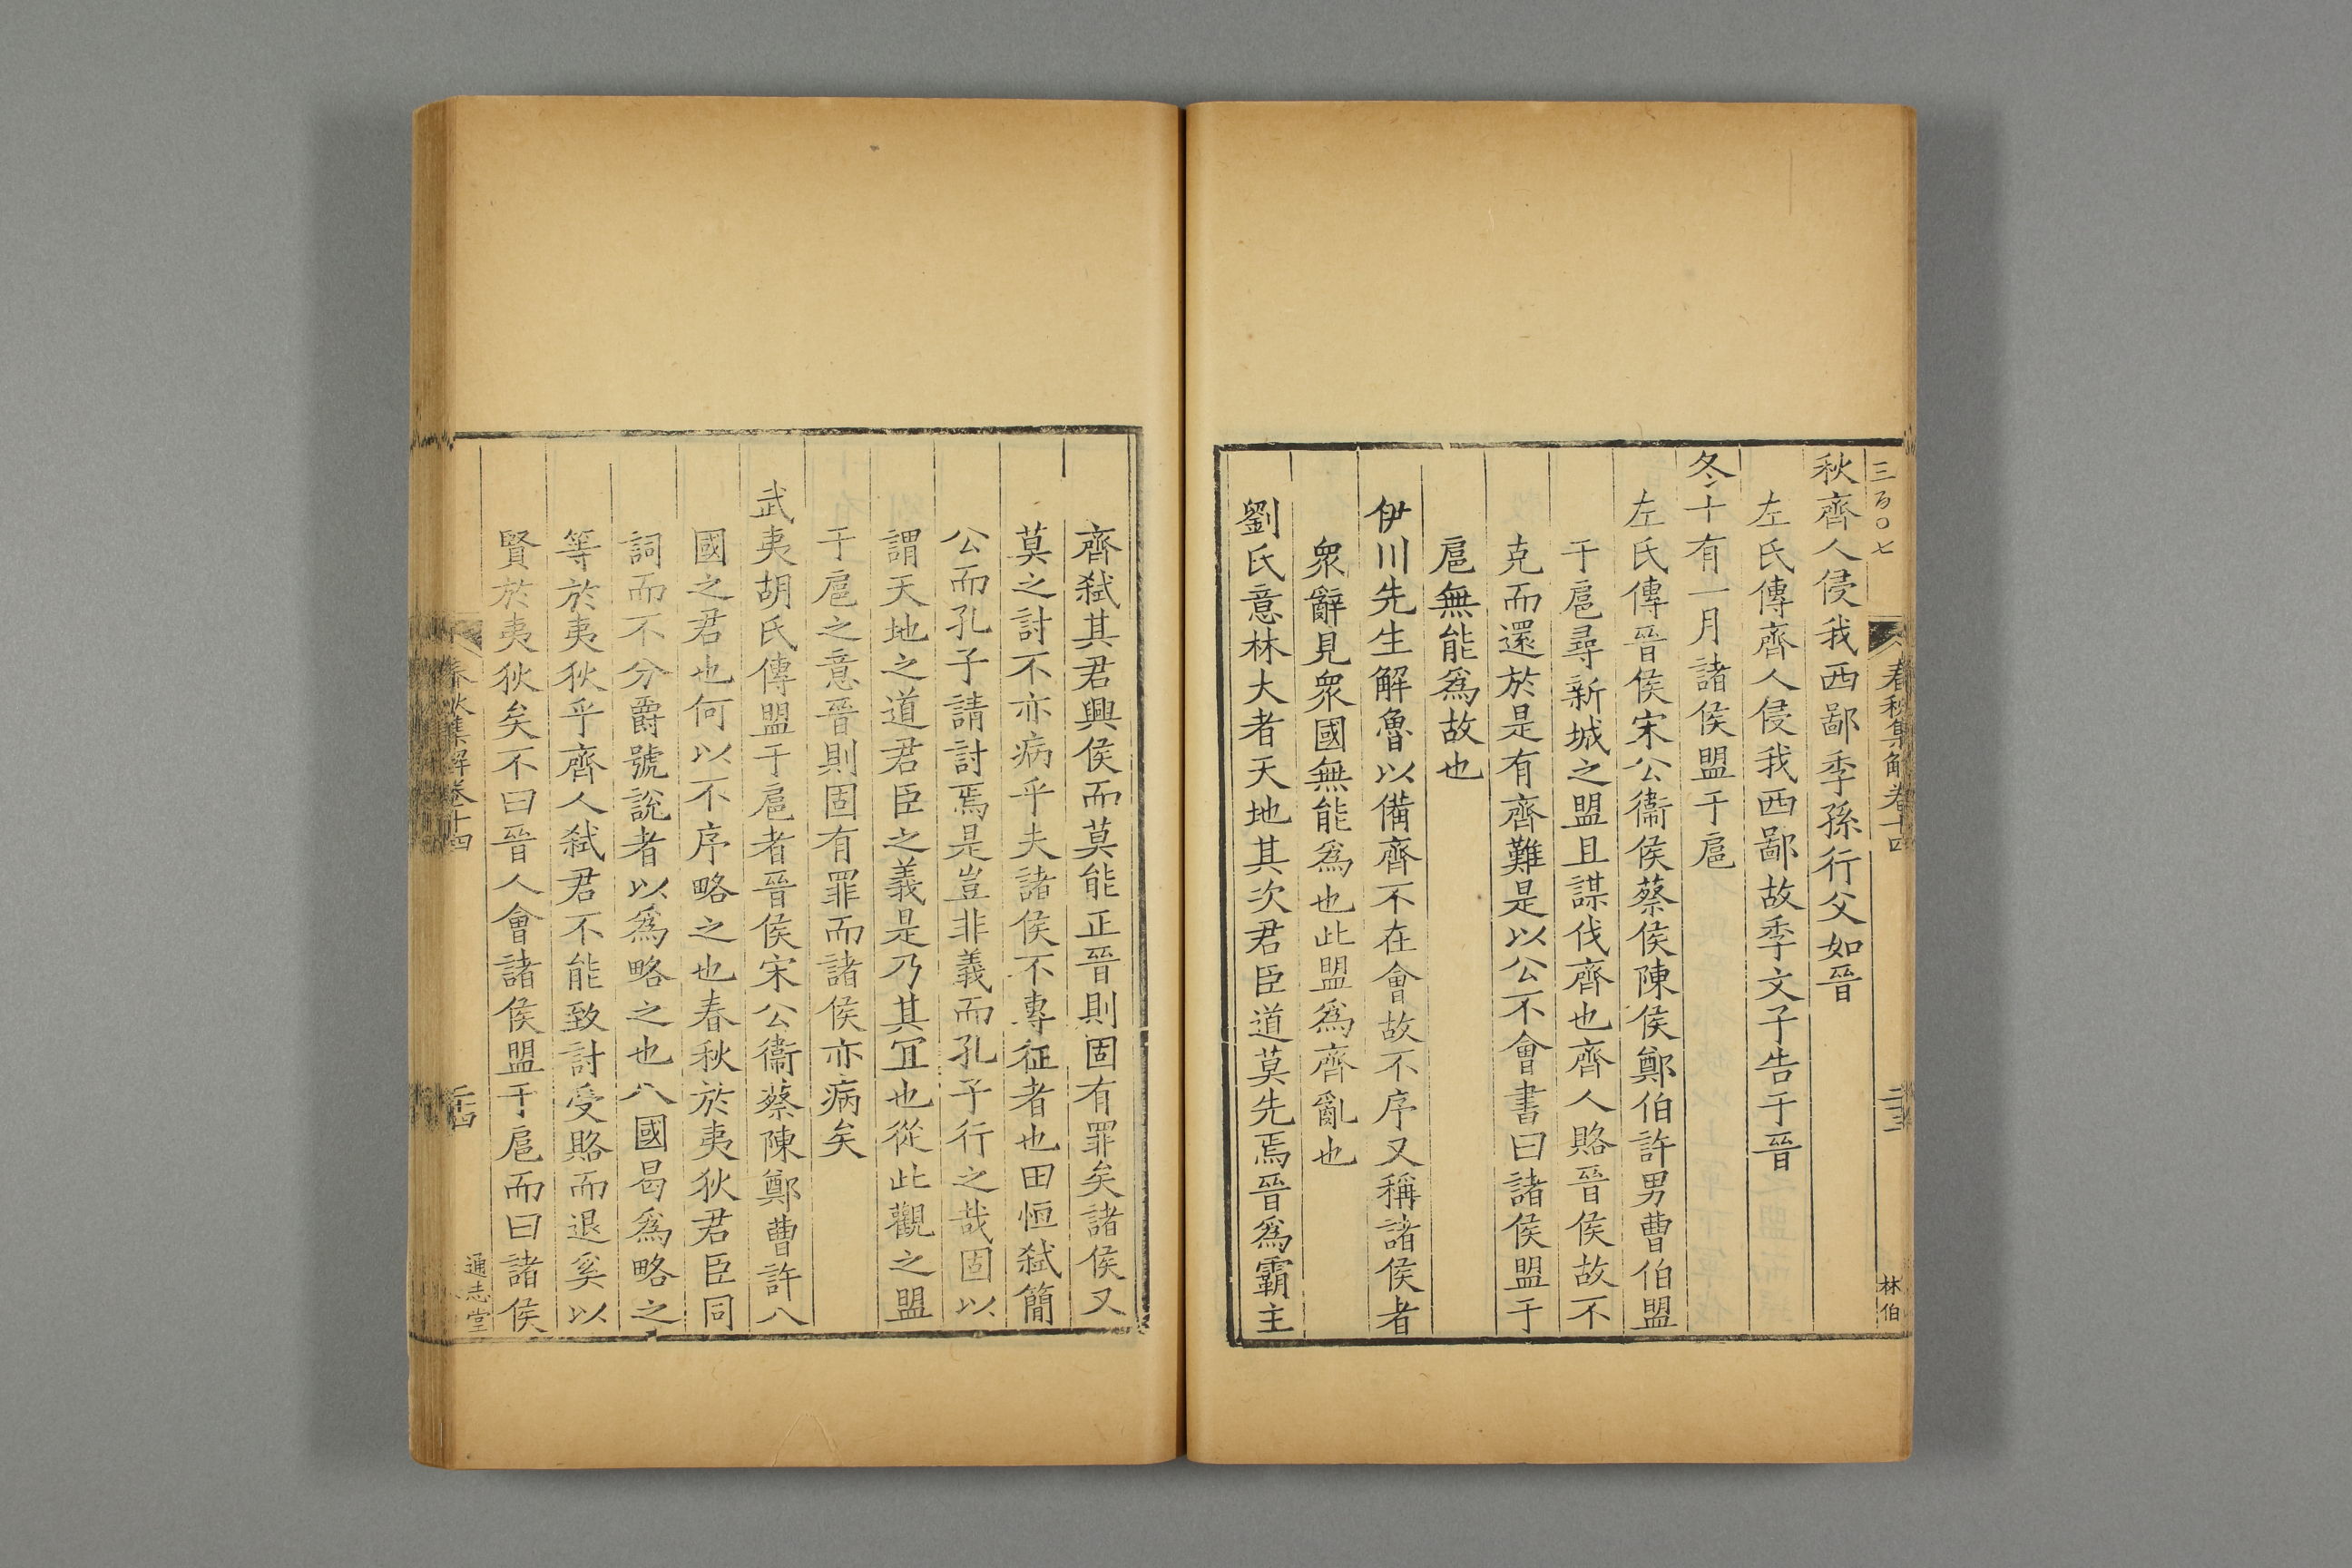 三百〇七
春秋集解卷十四
二十三
林伯
秋齊人侵我西鄙季孫行父如晉
左氏傳齊人侵我西鄙故季文子告于晉
冬十有一月諸侯盟于扈
左氏傳晉侯宋公衞侯蔡侯陳侯鄭伯許男曹伯盟
于扈尋新城之盟且謀伐齊也齊人賂晉侯故不
克而還於是有齊難是以公不會書曰諸侯盟于
扈無能爲故也
伊川先生解魯以備齊不在會故不序又稱諸侯者
衆辭見衆國無能爲也此盟爲齊亂也
劉氏意林大者天地其次君臣道莫先焉晉爲霸主
齊弑其君興侯而莫能正晉則固有罪矣諸侯又
莫之討不亦病乎夫諸侯不專征者也田恒弑簡
公而孔子請討焉是豈非義而孔子行之哉固以
謂天地之道君臣之義是乃其冝也從此觀之盟
于扈之意晉則固有罪而諸侯亦病矣
武夷胡氏傳盟于扈者晉侯宋公衞蔡陳鄭曹許八
國之君也何以不序略之也春秋於夷狄君臣同
詞而不分爵號說者以爲略之也八國曷爲略之
等於夷狄乎齊人弑君不能致討受賂而退奚以
賢於夷狄矣不曰晉人會諸侯盟于扈而曰諸侯
春秋集解卷十四
二十四
通志堂